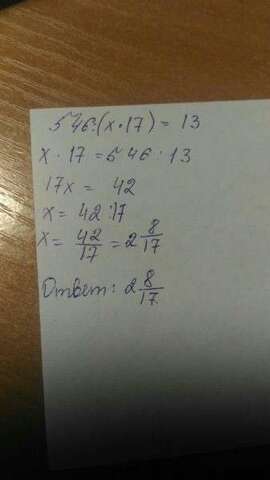 546:(x·17) = 13
x · 17 = 546 : 13
17x = 42
x = 42:17
x = 42/17 = 2 8/17
Ответ: 2 8/17